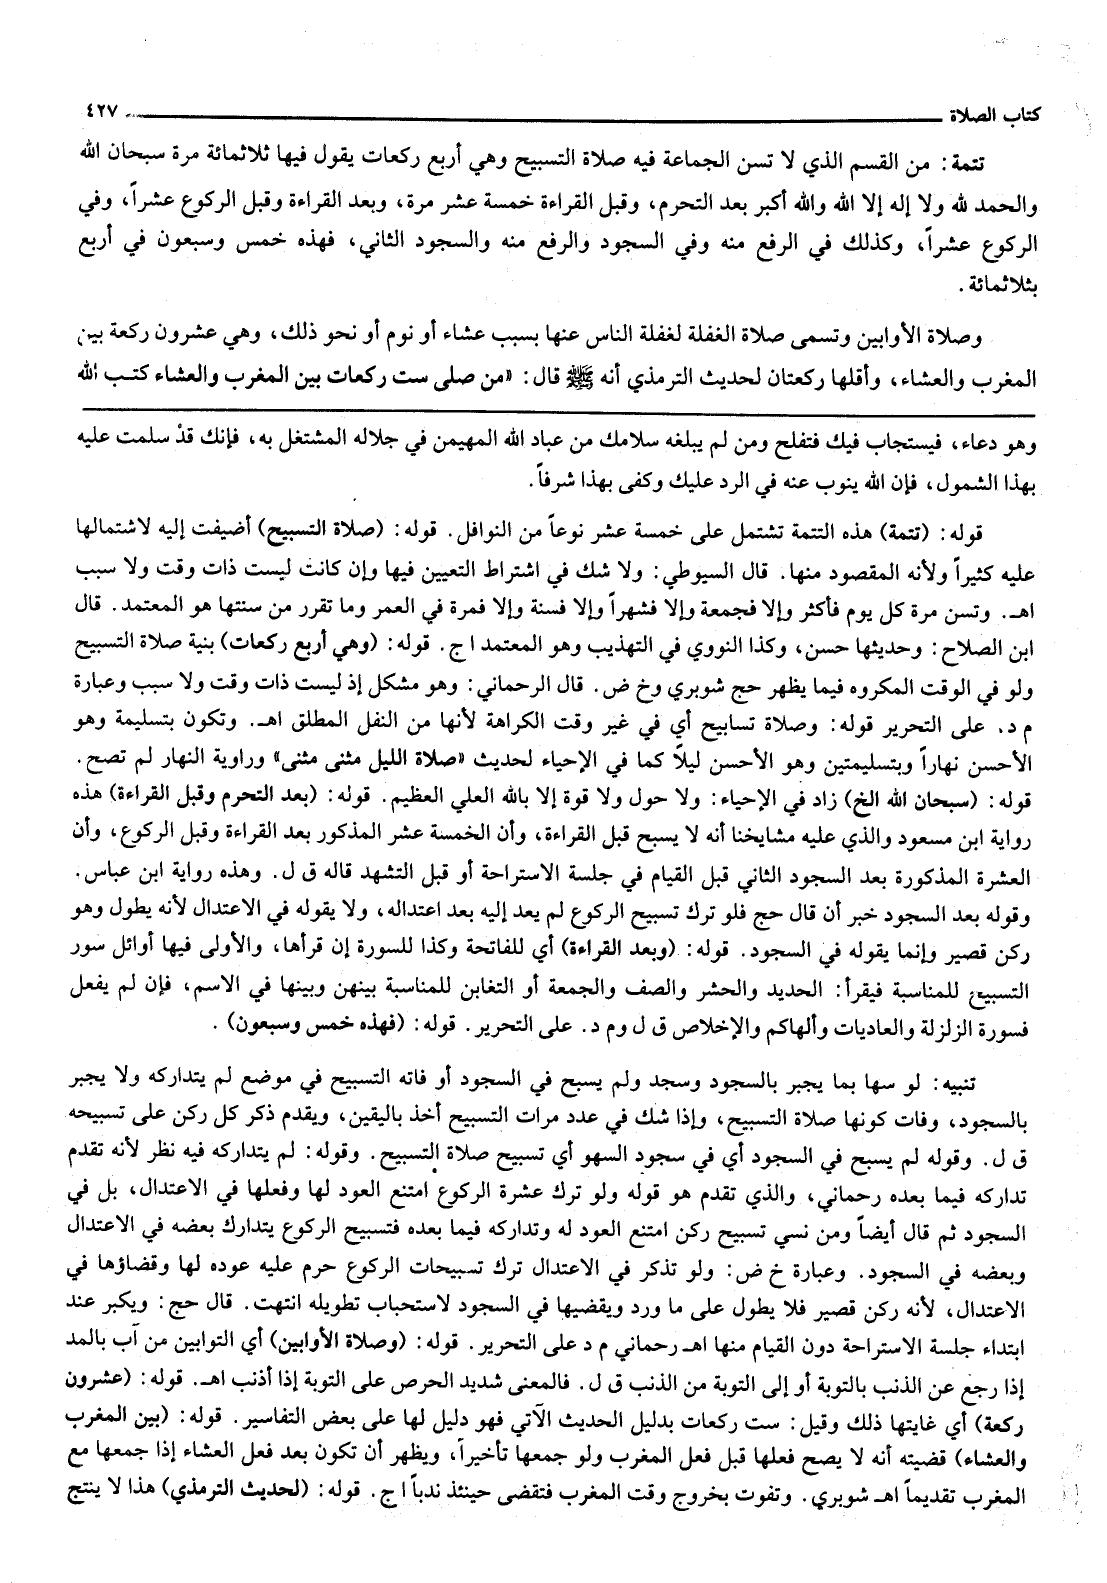 كتاب الصلاة ٤٢٧
تتمة: من القسم الذي لا تسن الجماعة فيه صلاة التسبيح وهي أربع ركعات يقول فيها ثلاثمائة مرة سبحان الله
والحمد لله ولا إله إلا الله والله أكبر بعد التحرم، وقبل القراءة خمسة عشر مرة، وبعد القراءة وقبل الركوع عشراً، وفي
الركوع عشراً، وكذلك في الرفع منه وفي السجود والرفع منه والسجود الثاني، فهذه خمس وسبعون في أربع
بثلاثمائة.
وصلاة الأوابين وتسمى صلاة الغفلة لغفلة الناس عنها بسبب عشاء أو نوم أو نحو ذلك، وهي عشرون ركعة بين
المغرب والعشاء، وأقلها ركعتان لحديث الترمذي أنه ﷺ قال: «من صلى ست ركعات بين المغرب والعشاء كتب الله
وهو دعاء، فيستجاب فيك فتفلح ومن لم يبلغه سلامك من عباد الله المهيمن في جلاله المشتغل به، فإنك قدْ سلمت عليه
بهذا الشمول، فإن الله ينوب عنه في الرد عليك وكفى بهذا شرفاً.
قوله: (تتمة) هذه التتمة تشتمل على خمسة عشر نوعاً من النوافل. قوله: (صلاة التسبيح) أضيفت إليه لاشتمالها
عليه كثيراً ولأنه المقصود منها. قال السيوطي: ولا شك في اشتراط التعيين فيها وإن كانت ليست ذات وقت ولا سبب
اهـ. وتسن مرة كل يوم فأكثر وإلا فجمعة وإلا فشهراً وإلا فسنة وإلا فمرة في العمر وما تقرر من سنتها هو المعتمد. قال
ابن الصلاح: وحديثها حسن، وكذا النووي في التهذيب وهو المعتمد ا ج. قوله: (وهي أربع ركعات) بنية صلاة التسبيح
ولو في الوقت المكروه فيما يظهر حج شوبري وخ ض. قال الرحماني: وهو مشكل إذ ليست ذات وقت ولا سبب وعبارة
م د. على التحرير قوله: وصلاة تسابيح أي في غير وقت الكراهة لأنها من النفل المطلق اهـ. وتكون بتسليمة وهو
الأحسن نهاراً وبتسليمتين وهو الأحسن ليلاً كما في الإحياء لحديث «صلاة الليل مثنى مثنى» وراوية النهار لم تصح.
قوله: (سبحان الله الخ) زاد في الإحياء: ولا حول ولا قوة إلا بالله العلي العظيم. قوله: (بعد التحرم وقبل القراءة) هذه
رواية ابن مسعود والذي عليه مشايخنا أنه لا يسبح قبل القراءة، وأن الخمسة عشر المذكور بعد القراءة وقبل الركوع، وأن
العشرة المذكورة بعد السجود الثاني قبل القيام في جلسة الاستراحة أو قبل التشهد قاله ق ل. وهذه رواية ابن عباس.
وقوله بعد السجود خبر أن قال حج فلو ترك تسبيح الركوع لم يعد إليه بعد اعتداله، ولا يقوله في الاعتدال لأنه يطول وهو
ركن قصير وإنما يقوله في السجود. قوله: (وبعد القراءة) أي للفاتحة وكذا للسورة إن قرأها، والأولى فيها أوائل سور
التسبيح للمناسبة فيقرأ: الحديد والحشر والصف والجمعة أو التغابن للمناسبة بينهن وبينها في الاسم، فإن لم يفعل
فسورة الزلزلة والعاديات وألهاكم والإخلاص ق ل وم د. على التحرير. قوله: (فهذه خمس وسبعون).
تنبيه: لو سها بما يجبر بالسجود وسجد ولم يسبح في السجود أو فاته التسبيح في موضع لم يتداركه ولا يجبر
بالسجود، وفات كونها صلاة التسبيح، وإذا شك في عدد مرات التسبيح أخذ باليقين، ويقدم ذكر كل ركن على تسبيحه
ق ل. وقوله لم يسبح في السجود أي في سجود السهو أي تسبيح صلاة التسبيح. وقوله: لم يتداركه فيه نظر لأنه تقدم
تداركه فيما بعده رحماني، والذي تقدم هو قوله ولو ترك عشرة الركوع امتنع العود لها وفعلها في الاعتدال، بل في
السجود ثم قال أيضاً ومن نسي تسبيح ركن امتنع العود له وتداركه فيما بعده فتسبيح الركوع يتدارك بعضه في الاعتدال
وبعضه في السجود. وعبارة خ ض: ولو تذكر في الاعتدال ترك تسبيحات الركوع حرم عليه عوده لها وقضاؤها في
الاعتدال، لأنه ركن قصير فلا يطول على ما ورد ويقضيها في السجود لاستحباب تطويله انتهت. قال حج: ويكبر عند
ابتداء جلسة الاستراحة دون القيام منها اهـ رحماني م د على التحرير. قوله: (وصلاة الأوابين) أي التوابين من آب بالمد
إذا رجع عن الذنب بالتوبة أو إلى التوبة من الذنب ق ل. فالمعنى شديد الحرص على التوبة إذا أذنب اهـ. قوله: (عشرون
ركعة) أي غايتها ذلك وقيل: ست ركعات بدليل الحديث الآتي فهو دليل لها على بعض التفاسير. قوله: (بين المغرب
والعشاء) قضيته أنه لا يصح فعلها قبل فعل المغرب ولو جمعها تأخيراً، ويظهر أن تكون بعد فعل العشاء إذا جمعها مع
المغرب تقديماً اهـ شوبري. وتفوت بخروج وقت المغرب فتقضى حينئذ ندباً ا ج. قوله: (لحديث الترمذي) هذا لا ينتج